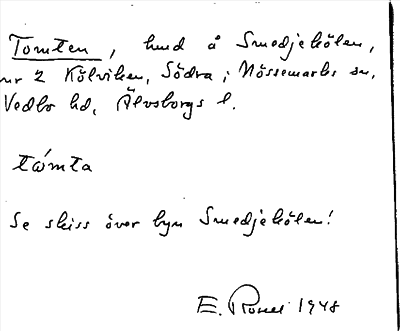 Tomten, hmd å Smedjekölen,
nr 2 Kölviken, Södra, i Nössemarks sn,
Vedbo hd, Älvsborgs l.
tὼmta
Se skiss över byn Smedjekölen!
E. 1948